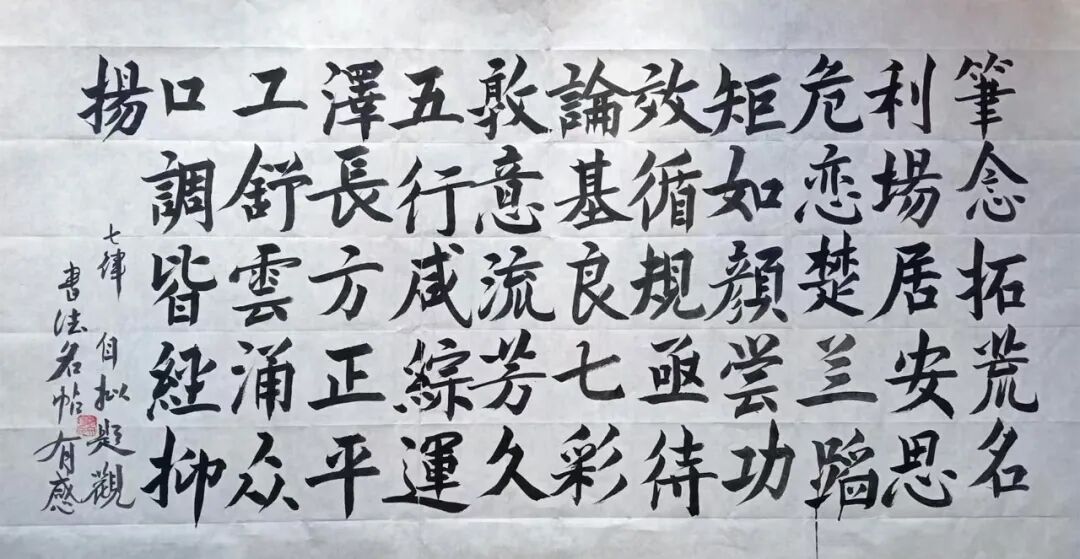 筆念拓荒名
利場居安思
危恋楚兰蹈
矩如顏尝功
效循規亟待
論基良七彩
敦意流芳久
五行咸綜運
澤長方正平
工舒雲涌众
口調皆經抑
揚
七律 自拟題觀
書法名帖有感